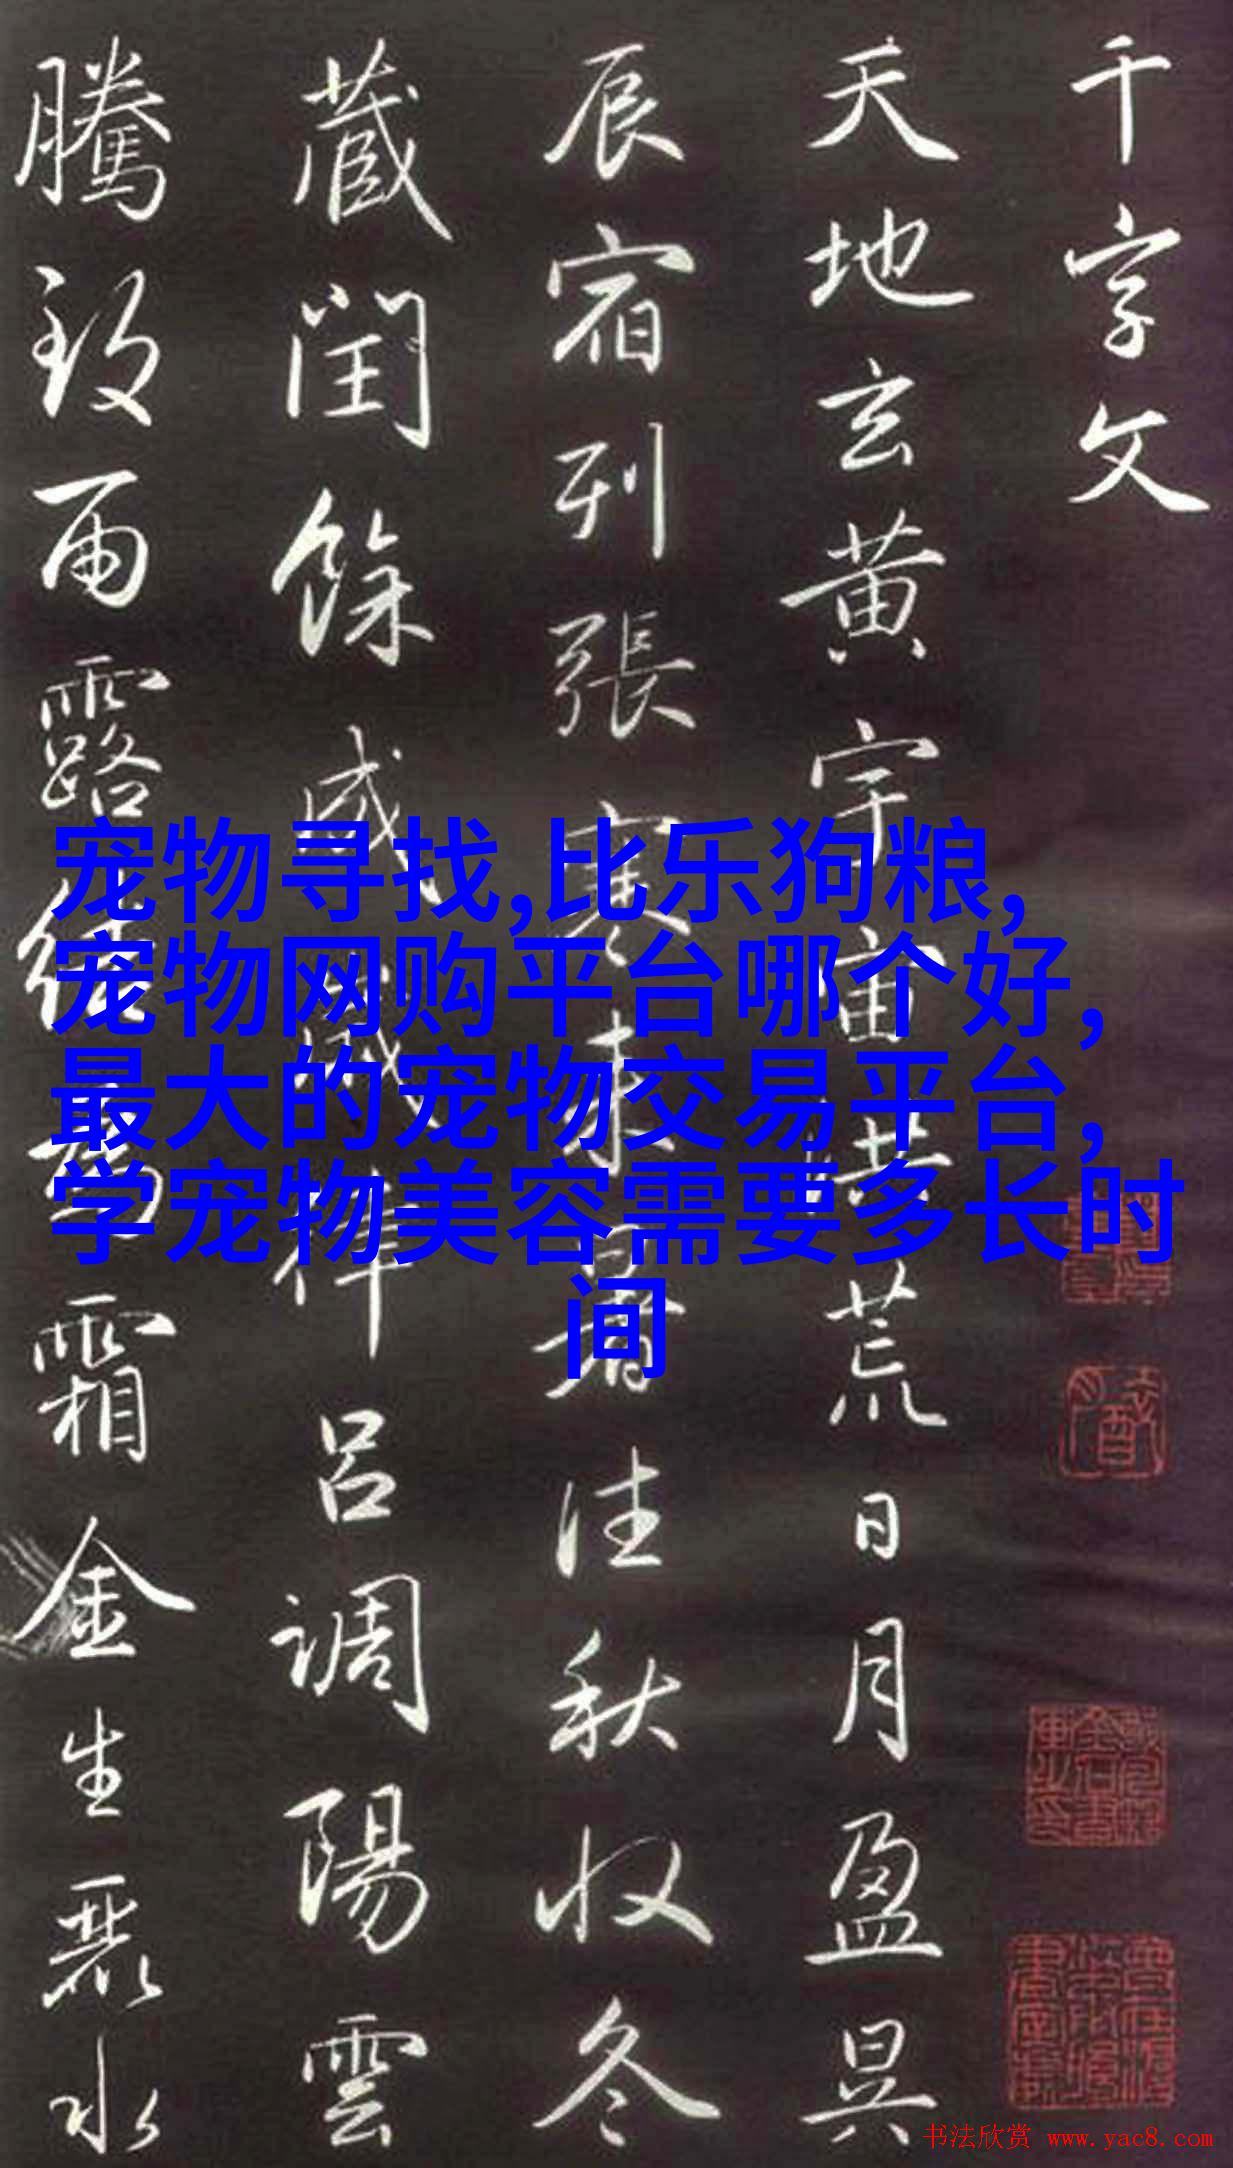 千字文
天地玄黄宇宙洪荒日月盈昃
辰宿列張寒来暑往秋收冬
藏閏餘成歲律吕調陽雲
騰致雨露結為霜金生麗水
宠物寻找,比乐狗粮,
宠物网购平台哪个好,
最大的宠物交易平台,
学宠物美容需要多长时
间
书法欣赏 www.yac8.com